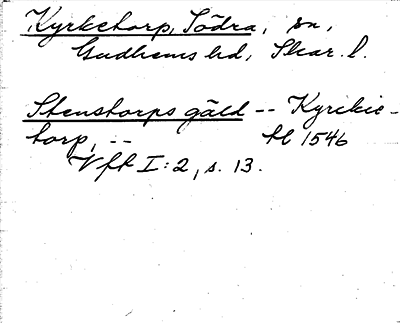 Kyrketorp, Södra, sn,
Gudhems hd, Skar. l.
Stenstorps gäld -- Kyrckie-
torp, -- tl 1546
Vff I:2, s. 13.